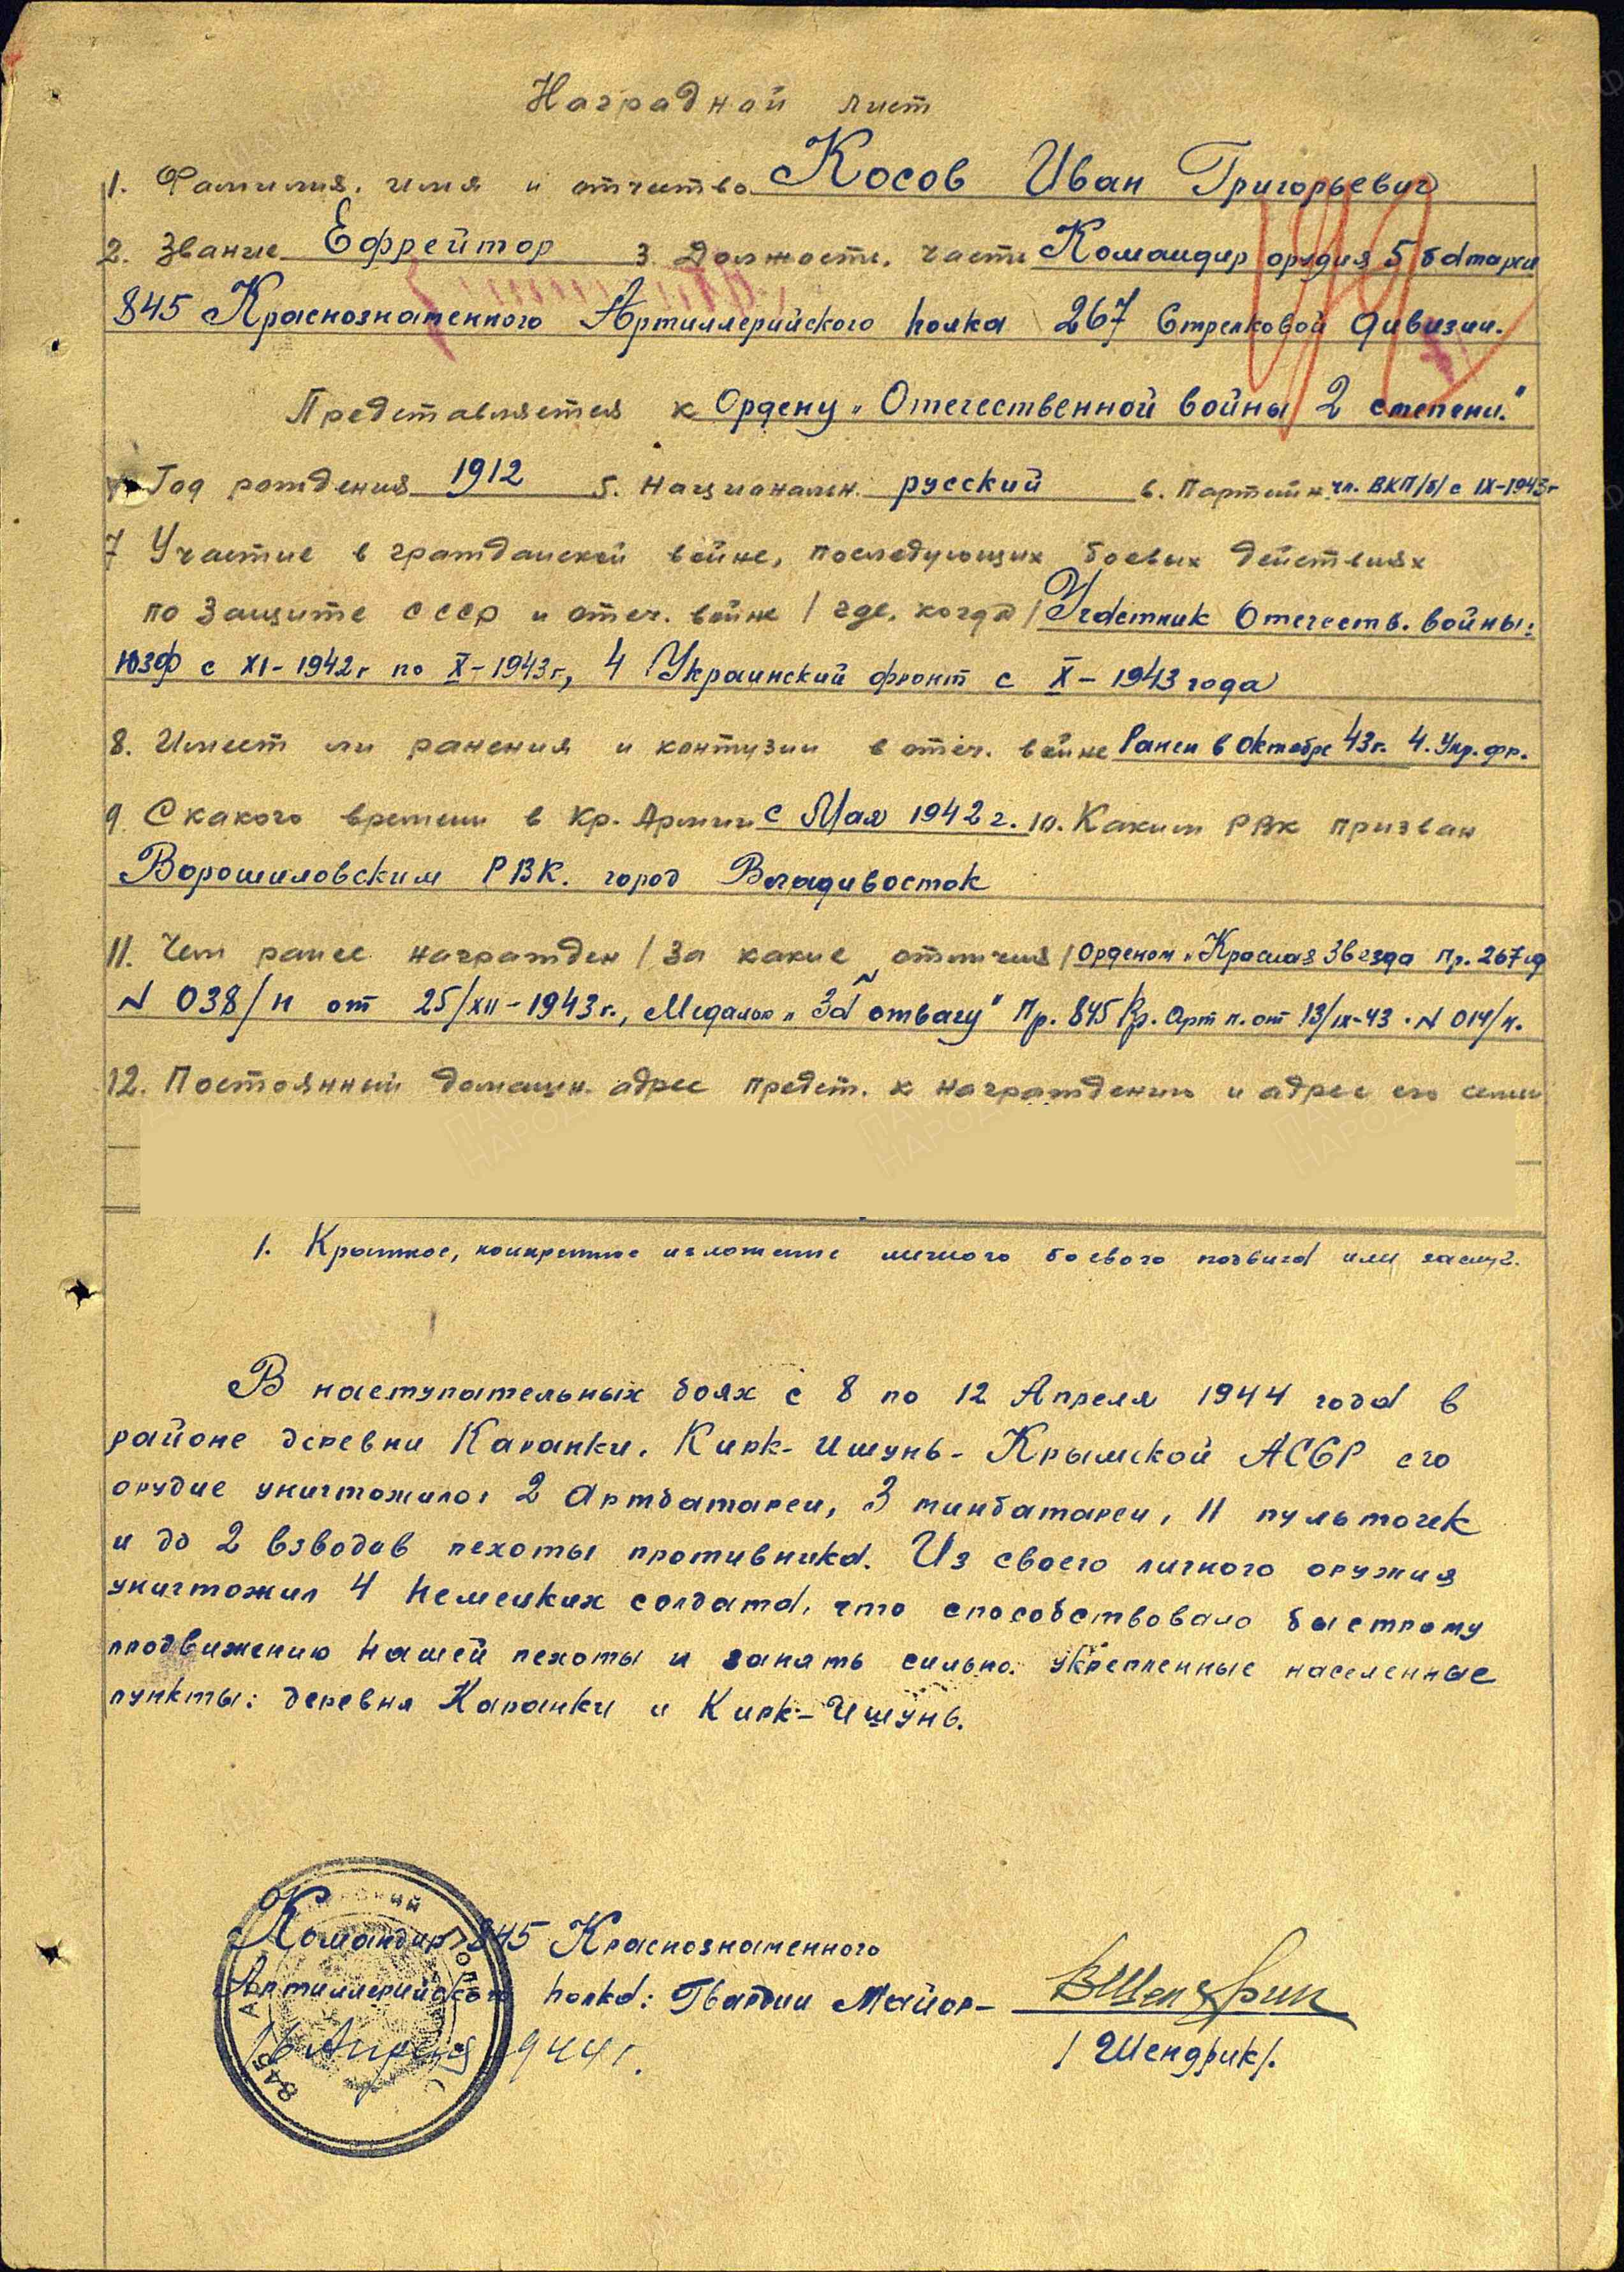 Наградной лист
1. Фамилия, имя и отчество Косов Иван Григорьевич
2. Звание Ефрейтор 3. Должность, часть Командир орудия 5 батареи
845 Краснознаменного Артиллерийского полка 267 Стрелковой дивизии.
Представляется к Ордену „Отечественной войны 2 степени."
Год рождения 1912 5. Национальн. русский 6. Партийн. чл. ВКП/б/ с IX-1943г
7 Участие в гражданской войне, последующих боевых действиях
по защите СССР и отеч. войне / где, когда / Участник Отечеств. войны:
ЮЗФ с XI-1942г по X-1943г, 4 Украинский фронт с X-1943 года
8. Имеет ли ранения и контузии в отеч. войне Ранен в Октябре 43г. 4. Укр. фр.
9. С какого времени в Кр. Армии с Мая 1942 г. 10. Каким РВК призван
Ворошиловским РВК. город Владивосток
11. Чем ранее награжден / за какие отличия / Орденом „Красная Звезда Пр. 267 сд
N 038/н от 25/XII-1943г., Медалью „За отвагу" Пр. 845 Кр. Арт п. от 13/IX-43 · N 014/н.
12. Постоянный домашн. адрес предст. к награждению и адрес его семьи
1. Краткое, конкретное изложение личного боевого подвига или заслуг.
В наступательных боях с 8 по 12 Апреля 1944 года в
районе деревни Каранки, Кирк-Ишунь-Крымской АССР его
орудие уничтожило: 2 Артбатареи, 3 минбатареи, 11 пульточек
и до 2 взводов пехоты противника. Из своего личного оружия
уничтожил 4 немецких солдата, что способствовало быстрому
продвижению нашей пехоты и занять сильно укрепленные населенные
пункты: деревня Каранки и Кирк-Ишунь.
Командир 845 Краснознаменного
Артиллерийского полка: Гвардии Майор-
16 Апреля 1944 г.
/Шендрик/.